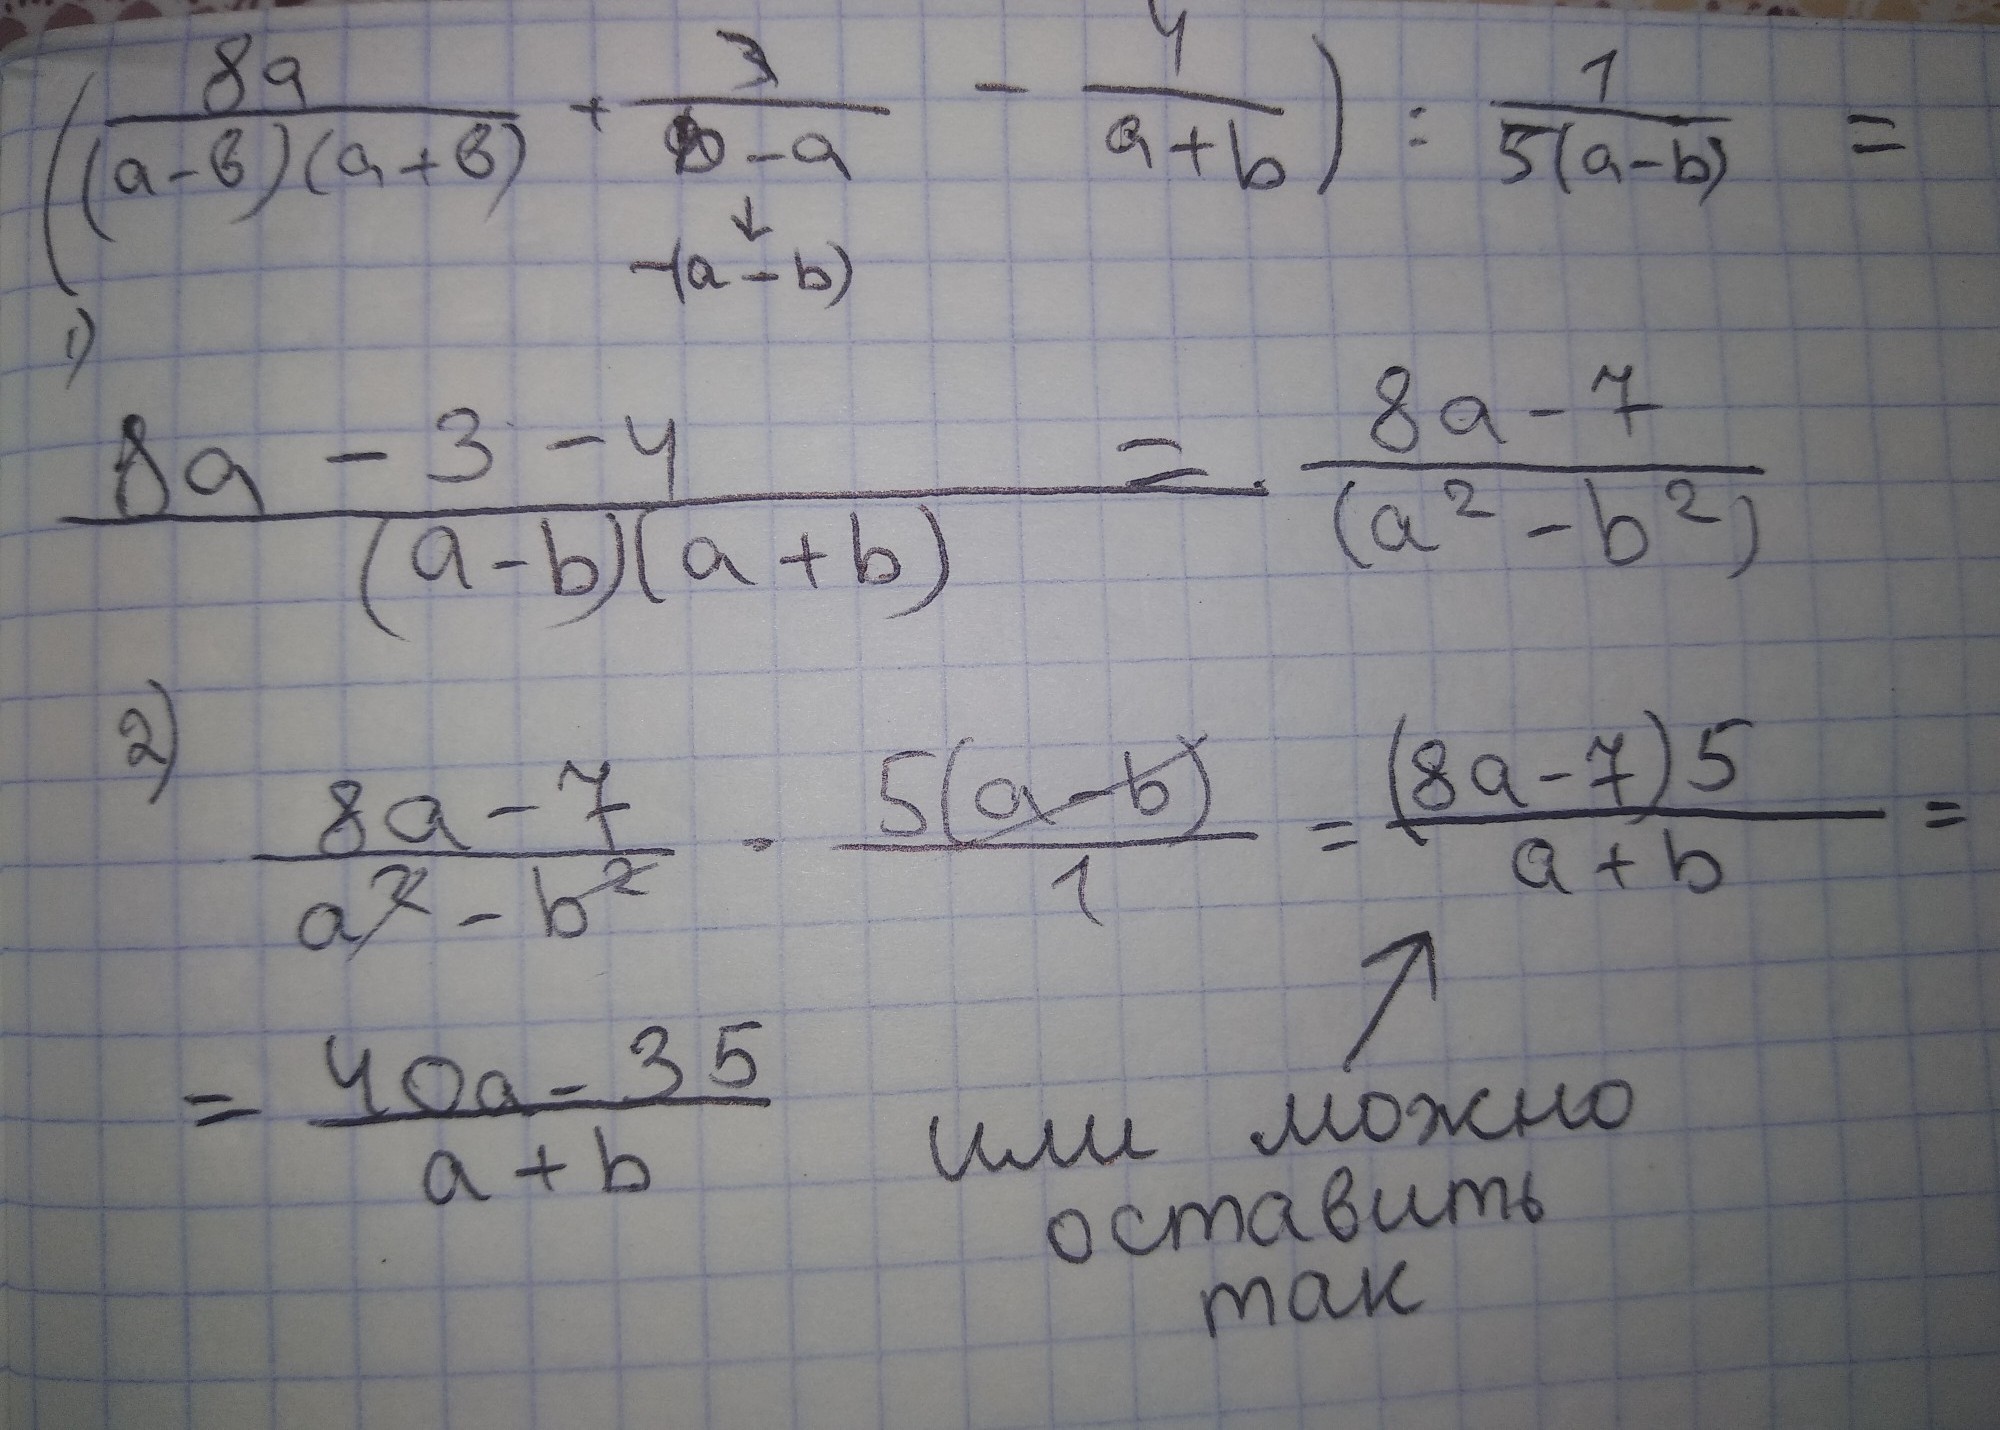 (8a/((a-в)(a+в)) + 3/(b-a) - 4/(a+b)) : 1/(5(a-b)) =
↓
-(a-b)
1)
(8a - 3 - 4)/((a-b)(a+b)) = (8a-7)/(a²-b²)
2)
(8a-7)/(a²-b²) · 5(a-b)/1 = (8a-7)5/(a+b) =
= (40a-35)/(a+b) или можно
оставить
так